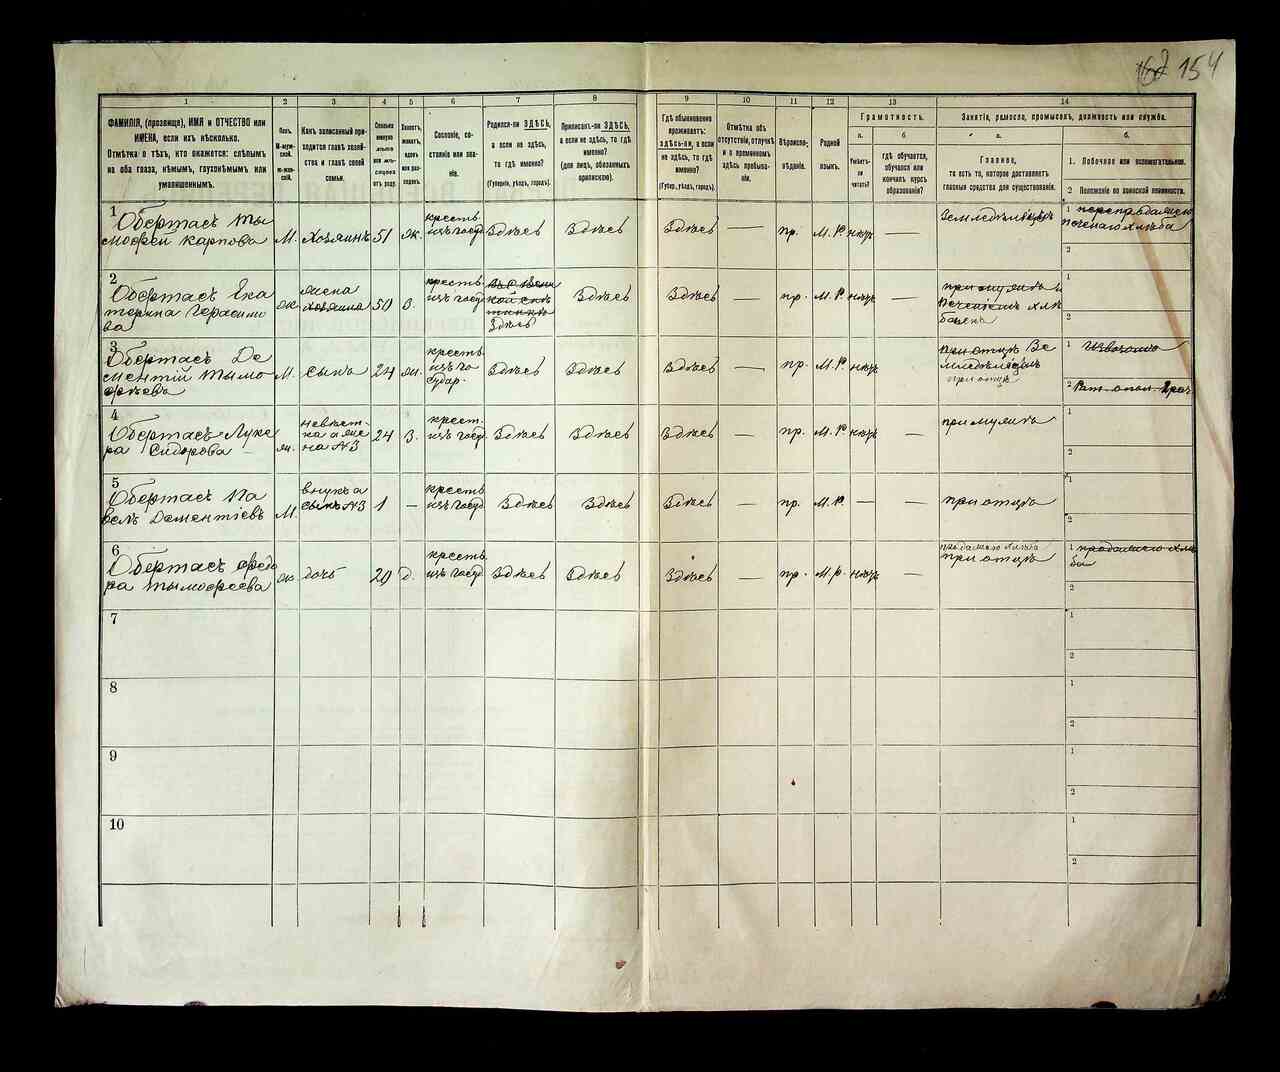 154
1 2 3 4 5 6 7 8 9 10 11 12 13 14
ФАМИЛІЯ, (прозвище), ИМЯ и ОТЧЕСТВО или
ИМЕНА, если ихъ нѣсколько.
Отмѣтка о тѣхъ, кто окажется: слѣпымъ
на оба глаза, нѣмымъ, глухонѣмымъ или
умалишеннымъ.
Полъ.
М-муж-
ской.
Ж-жен-
скій.
Какъ записанный при-
ходится главѣ хозяй-
ства и главѣ своей
семьи.
Сколько
минуло
лѣтъ
или мѣ-
сяцевъ
отъ роду.
Холостъ,
женатъ,
вдовъ
или раз-
веденъ.
Сословіе, со-
стояніе или зва-
ніе.
Родился-ли ЗДѢСЬ,
а если не здѣсь,
то гдѣ именно?
(Губернія, уѣздъ, городъ).
Приписанъ-ли ЗДѢСЬ,
а если не здѣсь, то гдѣ
именно?
(для лицъ, обязанныхъ
припискою).
Гдѣ обыкновенно
проживаетъ:
здѣсь-ли, а если
не здѣсь, то гдѣ
именно?
(Губер., уѣздъ, городъ).
Отмѣтка объ
отсутствіи, отлучкѣ
и о временномъ
здѣсь пребыва-
ніи.
Вѣроиспо-
вѣданіе.
Родной
языкъ.
Грамотность.
а.
Умѣетъ-
ли
читать?
б
гдѣ обучается,
обучался или
кончилъ курсъ
образованія?
Занятія, ремесло, промыселъ, должность или служба.
а.
Главное,
то есть то, которое доставляетъ
главныя средства для существованія.
б.
1. Побочное или вспомогательное.
2 Положеніе по воинской повинности.
1
Обертасъ Ты
мофей Карпова М. Хозяинъ 51 ж. кресть. изъ госуд Здѣсь Здѣсь Здѣсь — пр. М. Р. нѣтъ — Земледѣлецъ
1
печенаго хлѣба
2
2
Обертасъ Ека
терина Герасимо
ва ж. жена хозяина 50 з. кресть. изъ госуд Здѣсь Здѣсь Здѣсь — пр. М. Р. нѣтъ —
1
2
3
Обертасъ Де
ментій Тымо
фѣева М. сынъ 24 ж. кресть. изъ го судар. Здѣсь Здѣсь Здѣсь — пр. М. Р. нѣтъ — при отцѣ
1 Извозомъ
2
4
Обертасъ Луке
ра Сидорова ж. невѣст- ка а же на №3 24 з. крест. изъ госуд. Здѣсь Здѣсь Здѣсь — пр. М. Р. нѣтъ — при мужѣ
1
2
5
Обертасъ Па
велъ Дементіевъ М. внукъ а сынъ №3 1 — кресть. изъ госуд. Здѣсь Здѣсь Здѣсь — пр. М. Р. — — при отцѣ
1
2
6
Обертасъ Федо
ра Тымофеева ж. дочь 20 д. кресть. изъ госуд. Здѣсь Здѣсь Здѣсь — пр. М. р. нѣтъ — продажею хлѣба
при отцѣ
1 продажею хлѣ
ба
2
7
1
2
8
1
2
9
1
2
10
1
2